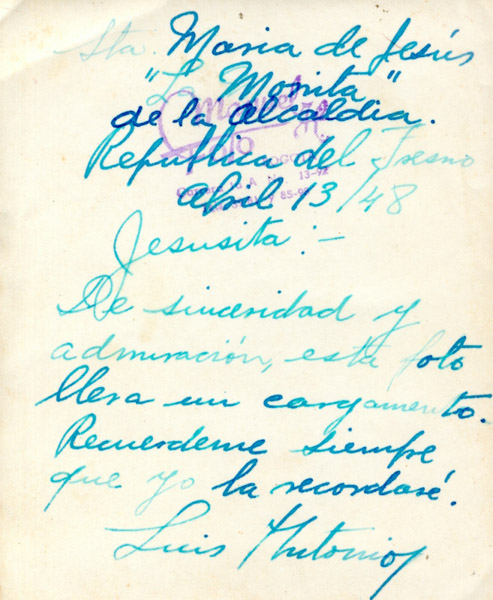 Sta. Maria de Jesús
"La Monita"
de la Alcaldia.
Republica del Fresno
Abril 13/48
Jesusita:-
De sinceridad y
admiración, esta foto
lleva un cargamento.
Recuerdeme siempre
que yo la recordaré.
Luis Antonio
Manuel H.
FOTO
BOGOTA
13-92